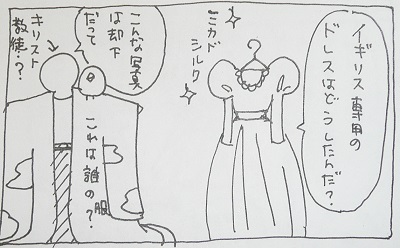 イギリス専用の
ドレスはどうしたんだ?
ミカド
シルク
こんな写真
は却下
だって
これは誰の服?
キリスト
教徒?